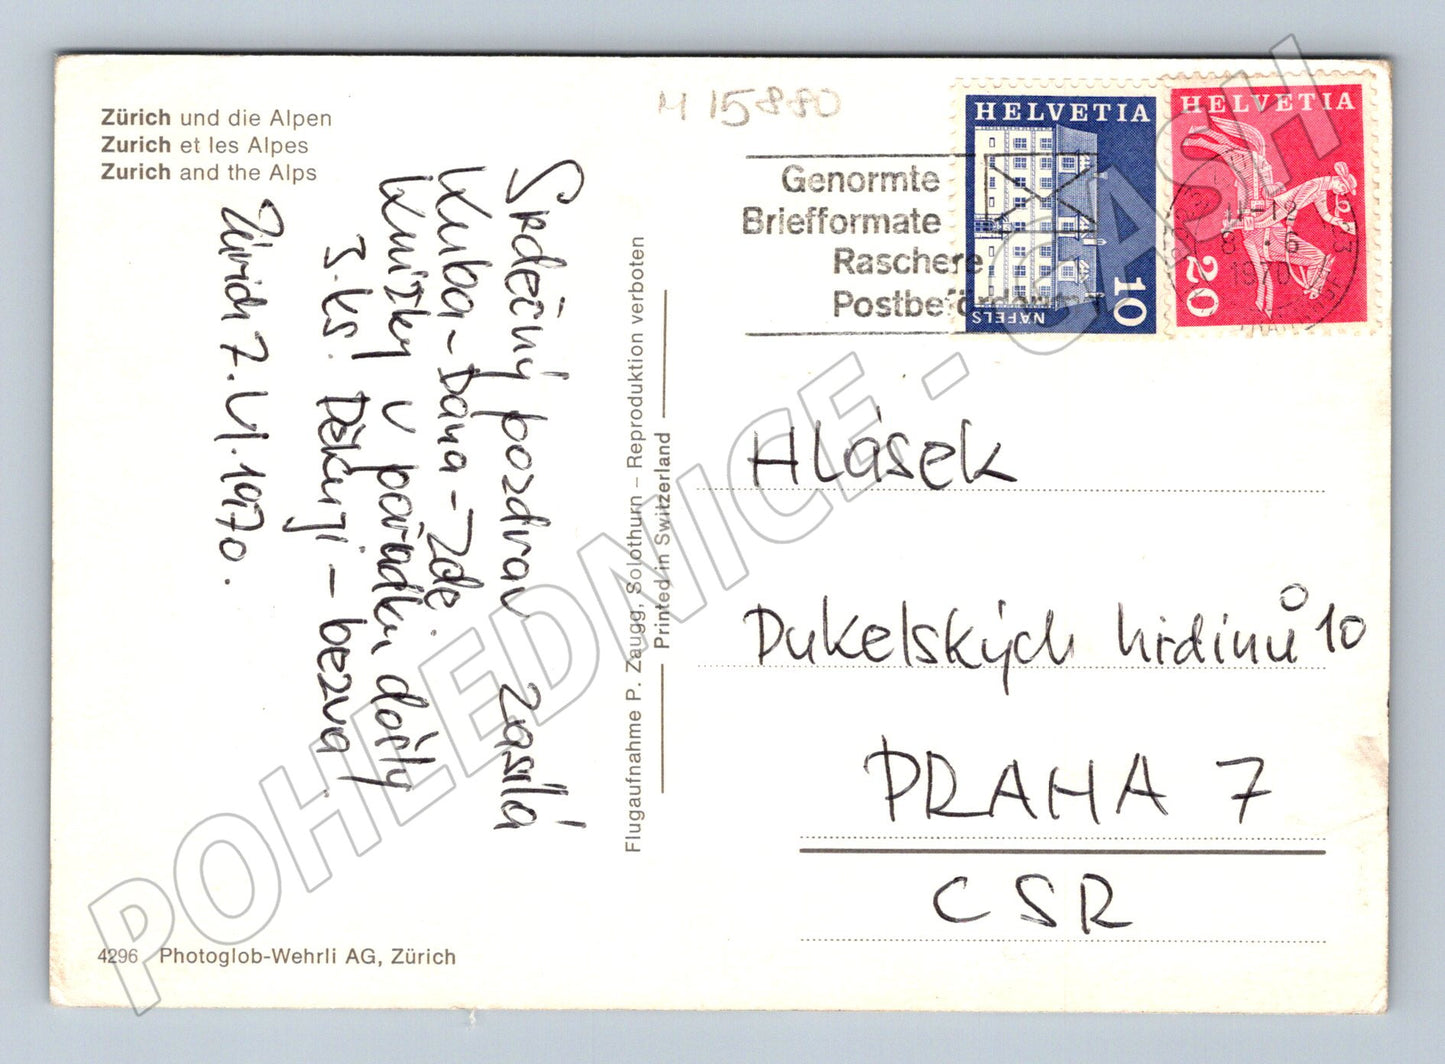 Zürich und die Alpen
Zurich et les Alpes
Zurich and the Alps
M 15880
Genormte
Briefformate
Raschere
Postbeförderung
HELVETIA
NÄFELS
10
HELVETIA
20
11-12
8.-6
1970
Srdečný pozdrav zasílá
Kuba-Dana-Zde.
Knížky v pořádku došly
3.ks. Děkuji - bezva.
Zürich 7.VI.1970.
Flugaufnahme P. Zaugg, Solothurn – Reproduktion verboten
Printed in Switzerland
Hlásek
Dukelských hrdinů 10
PRAHA 7
CSR
4296 Photoglob-Wehrli AG, Zürich
POHLEDNICE - CASH